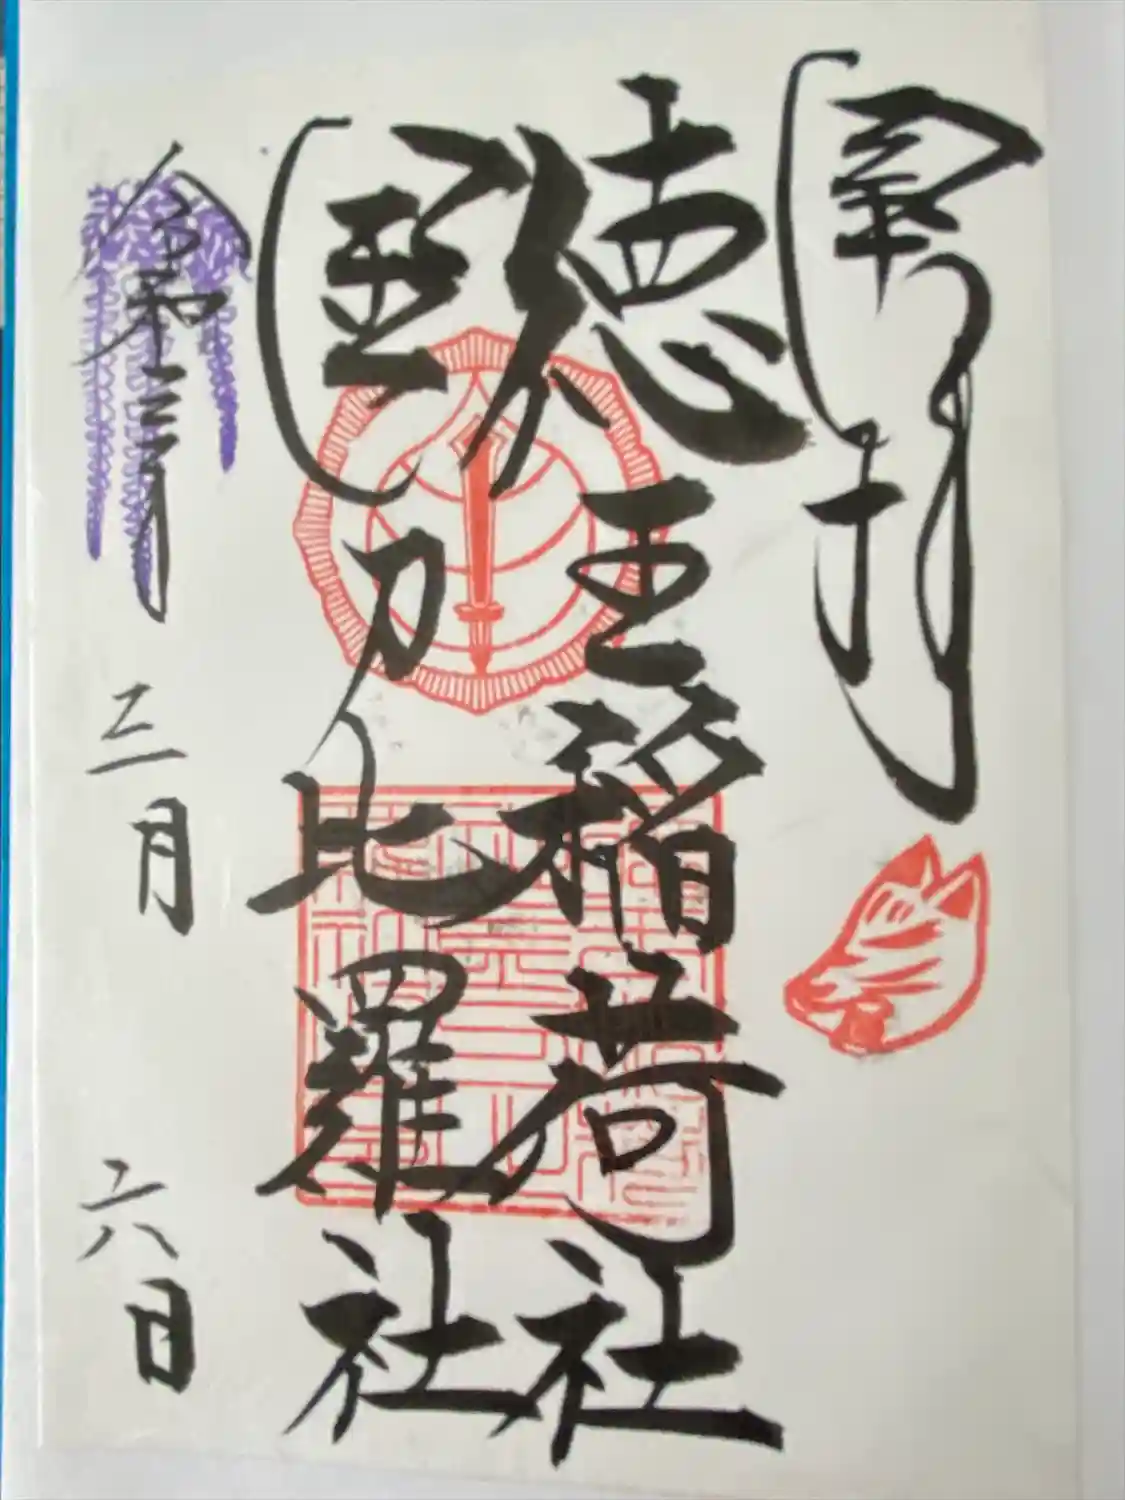 奉拝
徳王稲荷社
金刀比羅社
令和三年 三月 六日